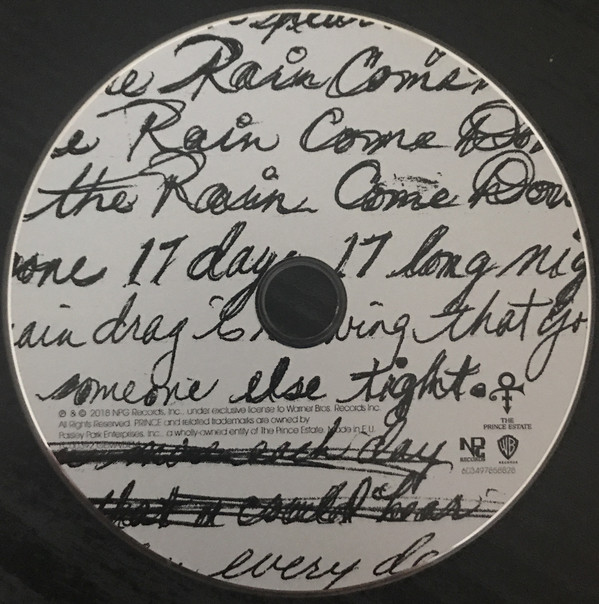 e Rain Comin
e Rain Come Do
the Rain Come Dow
one 17 days 17 long nig
ain drag is knowing that yo
someone else tight.
℗ & © 2018 NPG Records, Inc., under exclusive license to Warner Bros. Records Inc.
All Rights Reserved. PRINCE and related trademarks are owned by
Paisley Park Enterprises, Inc., a wholly-owned entity of The Prince Estate. Made in E.U.
THE
PRINCE ESTATE
NPG
RECORDS
WB
RECORDS
603497858828
each day
that u could hear
every da